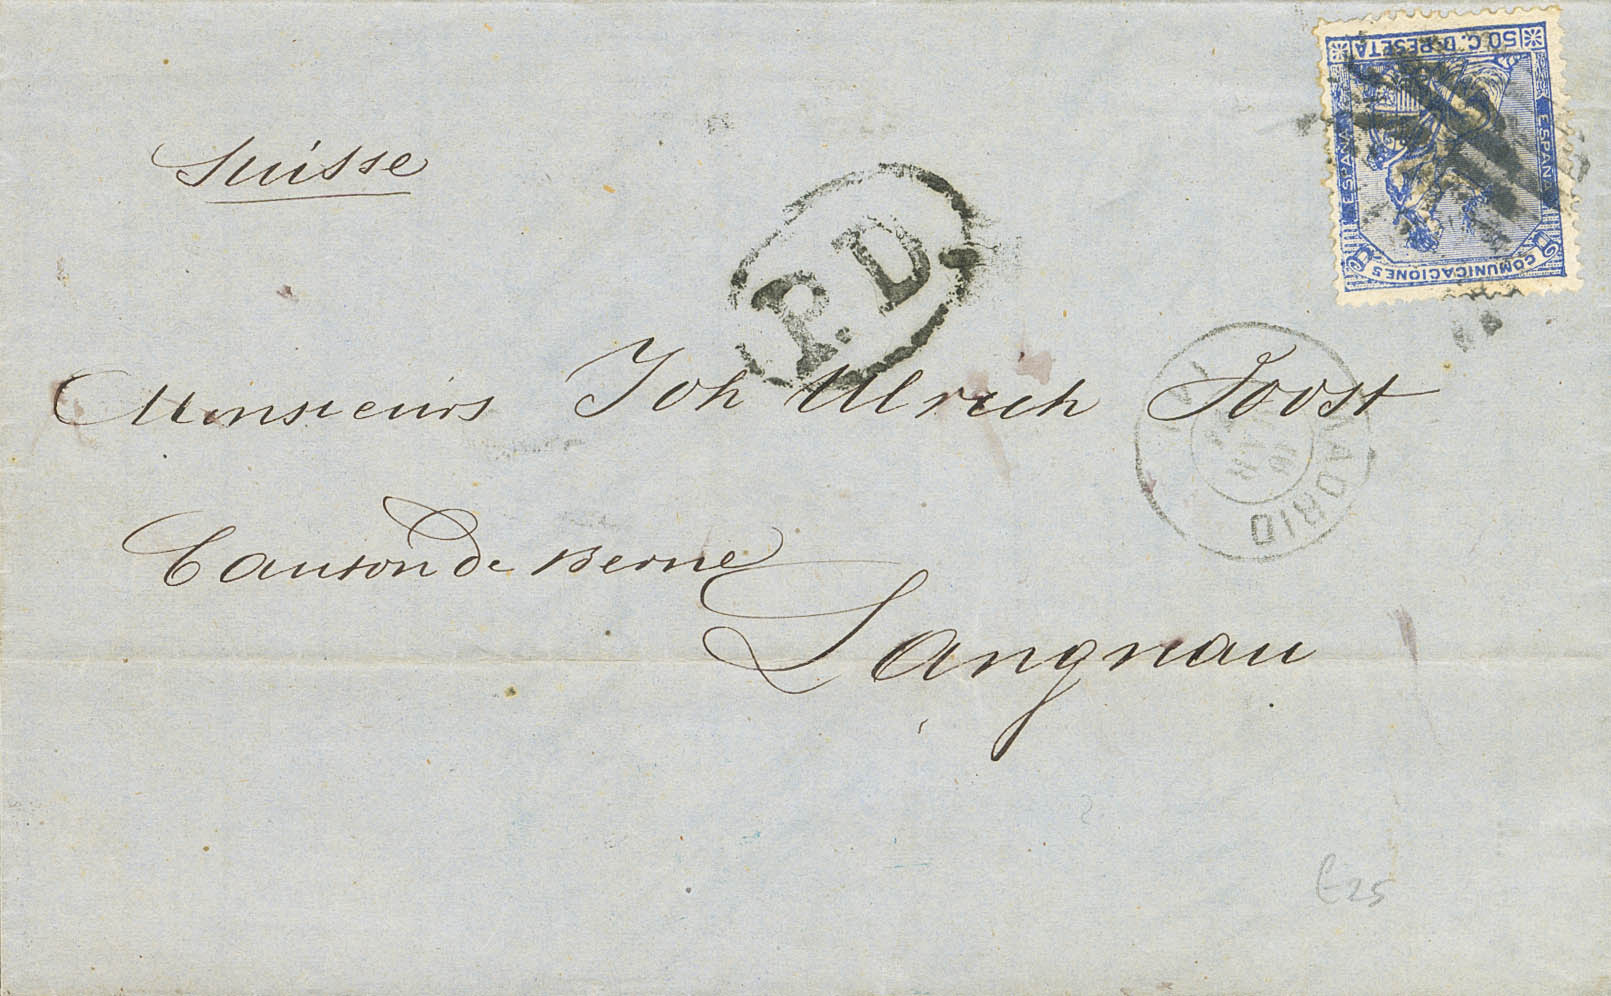 50 C. D PESETA
ESPAÑA
ESPAÑA
COMUNICACIONES
Suisse
P. D.
Monsieurs Joh Ulrich Joost
MADRID
Canton de Berne
Langnau
25